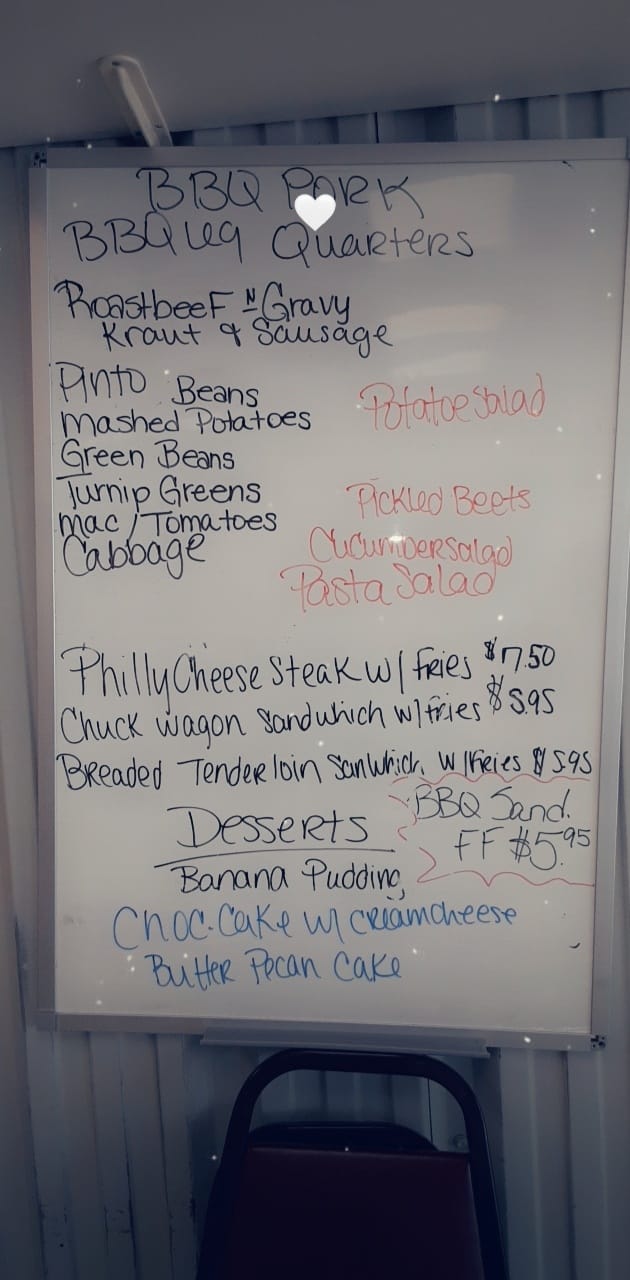 BBQ PORK
BBQ Leg Quarters
Roastbeef N Gravy
Kraut & Sausage
Pinto Beans
Mashed Potatoes
Potatoe Salad
Green Beans
Turnip Greens
Pickled Beets
Mac / Tomatoes
Cabbage
Cucumber Salad
Pasta Salad
Philly Cheese Steak w/ Fries $7.50
Chuck wagon Sandwhich w/ fries $5.95
Breaded Tenderloin Sanwhich w/ Fries $5.95
BBQ Sand.
FF $5.95
Desserts
Banana Pudding
Choc. Cake w/ creamcheese
Butter Pecan Cake